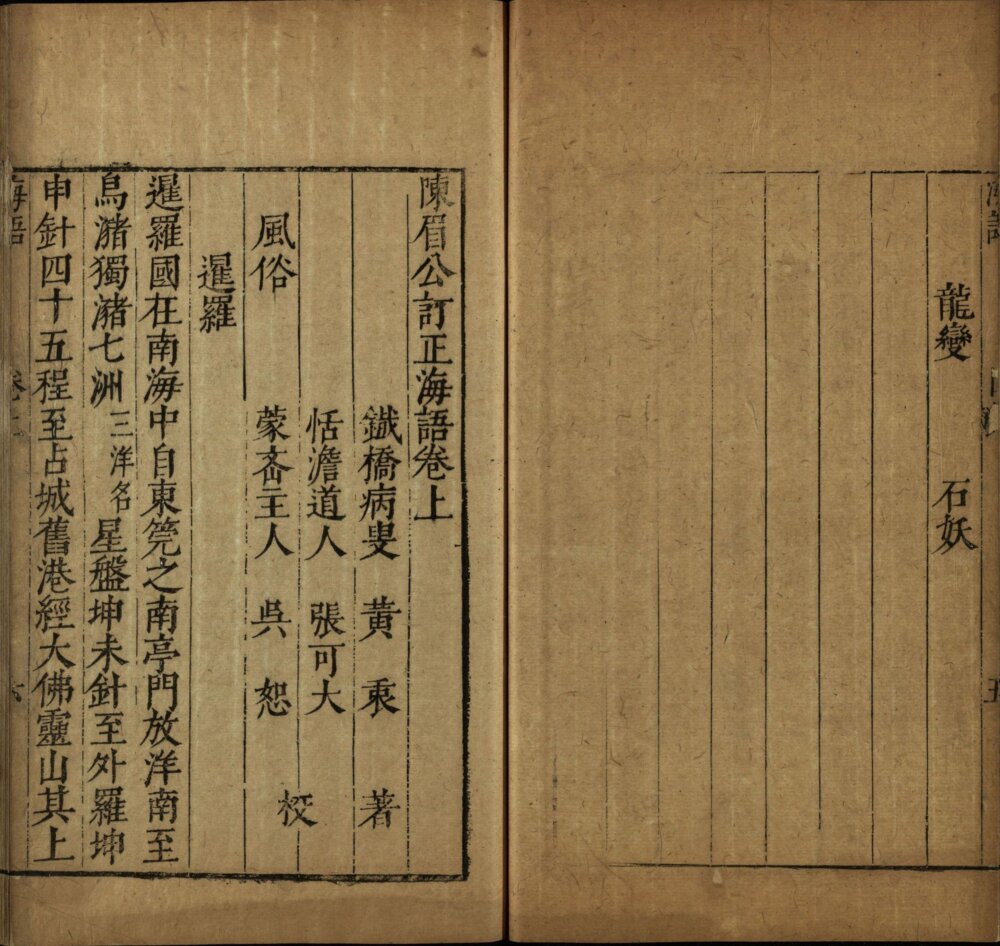 龍變　石妖
五
陳眉公訂正海語卷上
鐵橋病叟　黃衷　著
恬澹道人　張可大
蒙斎主人　吳恕　校
風俗
暹羅
暹羅國在南海中自東筦之南亭門放洋南至
烏潴獨潴七洲三洋名星盤坤未針至外羅坤
申針四十五程至占城舊港經大佛靈山其上
海語　卷上　六